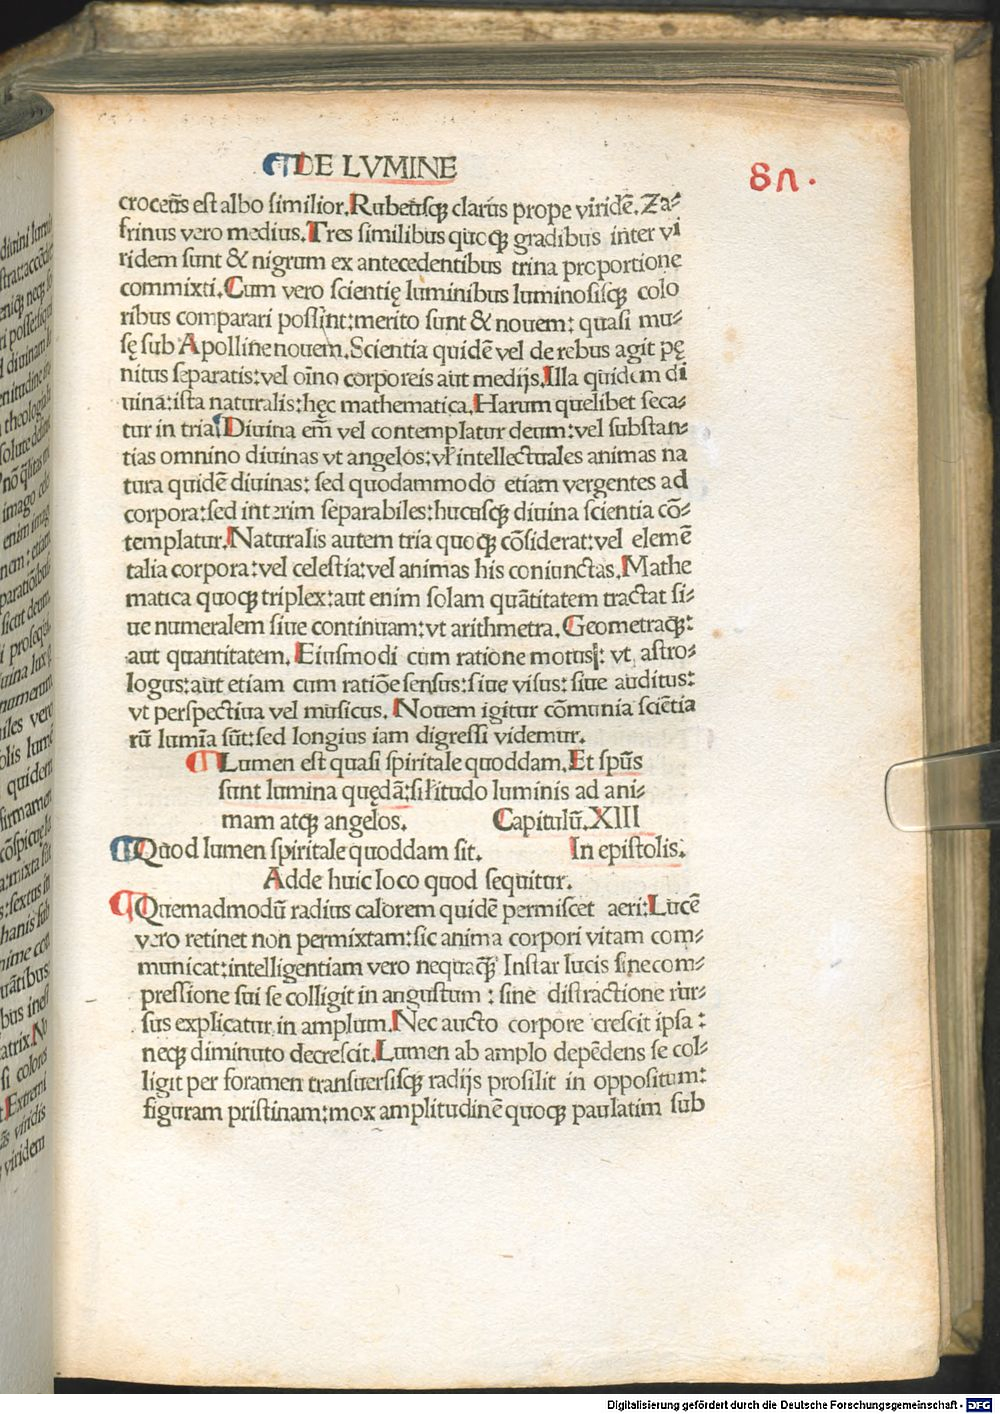 ¶DE LVMINE
8Λ.
croceūs est albo similior. Rubeusqꝫ clarus prope viridē. Za⸗
frinus vero medius. Tres similibus quoqꝫ gradibus inter vi
ridem sunt & nigrum ex antecedentibus trina proportione
commixti. Cum vero scientię luminibus luminosisqꝫ colo
ribus comparari possint: merito sunt & nouem: quasi mu⸗
sę sub Apolline nouem. Scientia quidē vel de rebus agit pę
nitus separatis: vel oīno corporeis aut medijs. Illa quidem di
uina: ista naturalis: hęc mathematica. Harum quelibet seca⸗
tur in tria¶ Diuina em̄ vel contemplatur deum: vel substan⸗
tias omnino diuinas vt angelos: vł intellectuales animas na
tura quidē diuinas: sed quodammodo etiam vergentes ad
corpora: sed interim separabiles: hucusqꝫ diuina scientia cō⸗
templatur. Naturalis autem tria quoqꝫ cōsiderat: vel elemē
talia corpora: vel celestia: vel animas his coniunctas. Mathe
matica quoqꝫ triplex: aut enim solam quātitatem tractat si⸗
ue numeralem siue continuam: vt arithmetra. Geometraqꝫ:
aut quantitatem. Eiusmodi cum ratione motus: vt astro⸗
logus: aut etiam cum ratiōe sensus: siue visus: siue auditus:
vt perspectiua vel musicus. Nouem igitur cōmunia sciētia
rū lumīa sūt: sed longius iam digressi videmur.
¶ Lumen est quasi spiritale quoddam. Et spūs
sunt lumina quędā: siłitudo luminis ad ani⸗
mam atqꝫ angelos. Capitulū. XIII
¶Quod lumen spiritale quoddam sit. In epistolis.
Adde huic loco quod sequitur.
¶Quemadmodū radius calorem quidē permiscet aeri: Lucē
vero retinet non permixtam: sic anima corpori vitam com⸗
municat: intelligentiam vero nequaqꝫ̄ Instar lucis sine com⸗
pressione sui se colligit in angustum: sine distractione rur⸗
sus explicatur in amplum. Nec aucto corpore crescit ipsa:
neqꝫ diminuto decrescit. Lumen ab amplo depēdens se col⸗
ligit per foramen transuersisqꝫ radijs prosilit in oppositum:
figuram pristinam: mox amplitudinē quoqꝫ paulatim sub
Digitalisierung gefördert durch die Deutsche Forschungsgemeinschaft - DFG